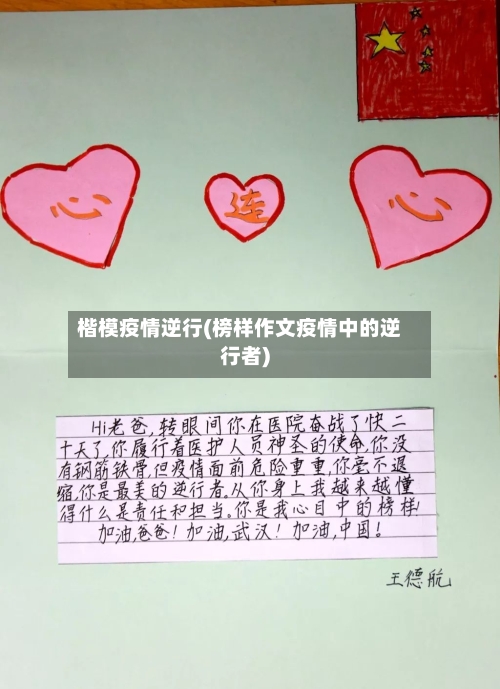 心 连 心
楷模疫情逆行(榜样作文疫情中的逆
行者)
Hi老爸,转眼间你在医院奋战了快二
十天了,你履行着医护人员神圣的使命,你没
有钢筋铁骨,但疫情面前危险重重,你毫不退
缩,你是最美的逆行者,从你身上我越来越懂
得什么是责任和担当,你是我心目中的榜样!
加油,爸爸!加油,武汉!加油,中国!
王德航